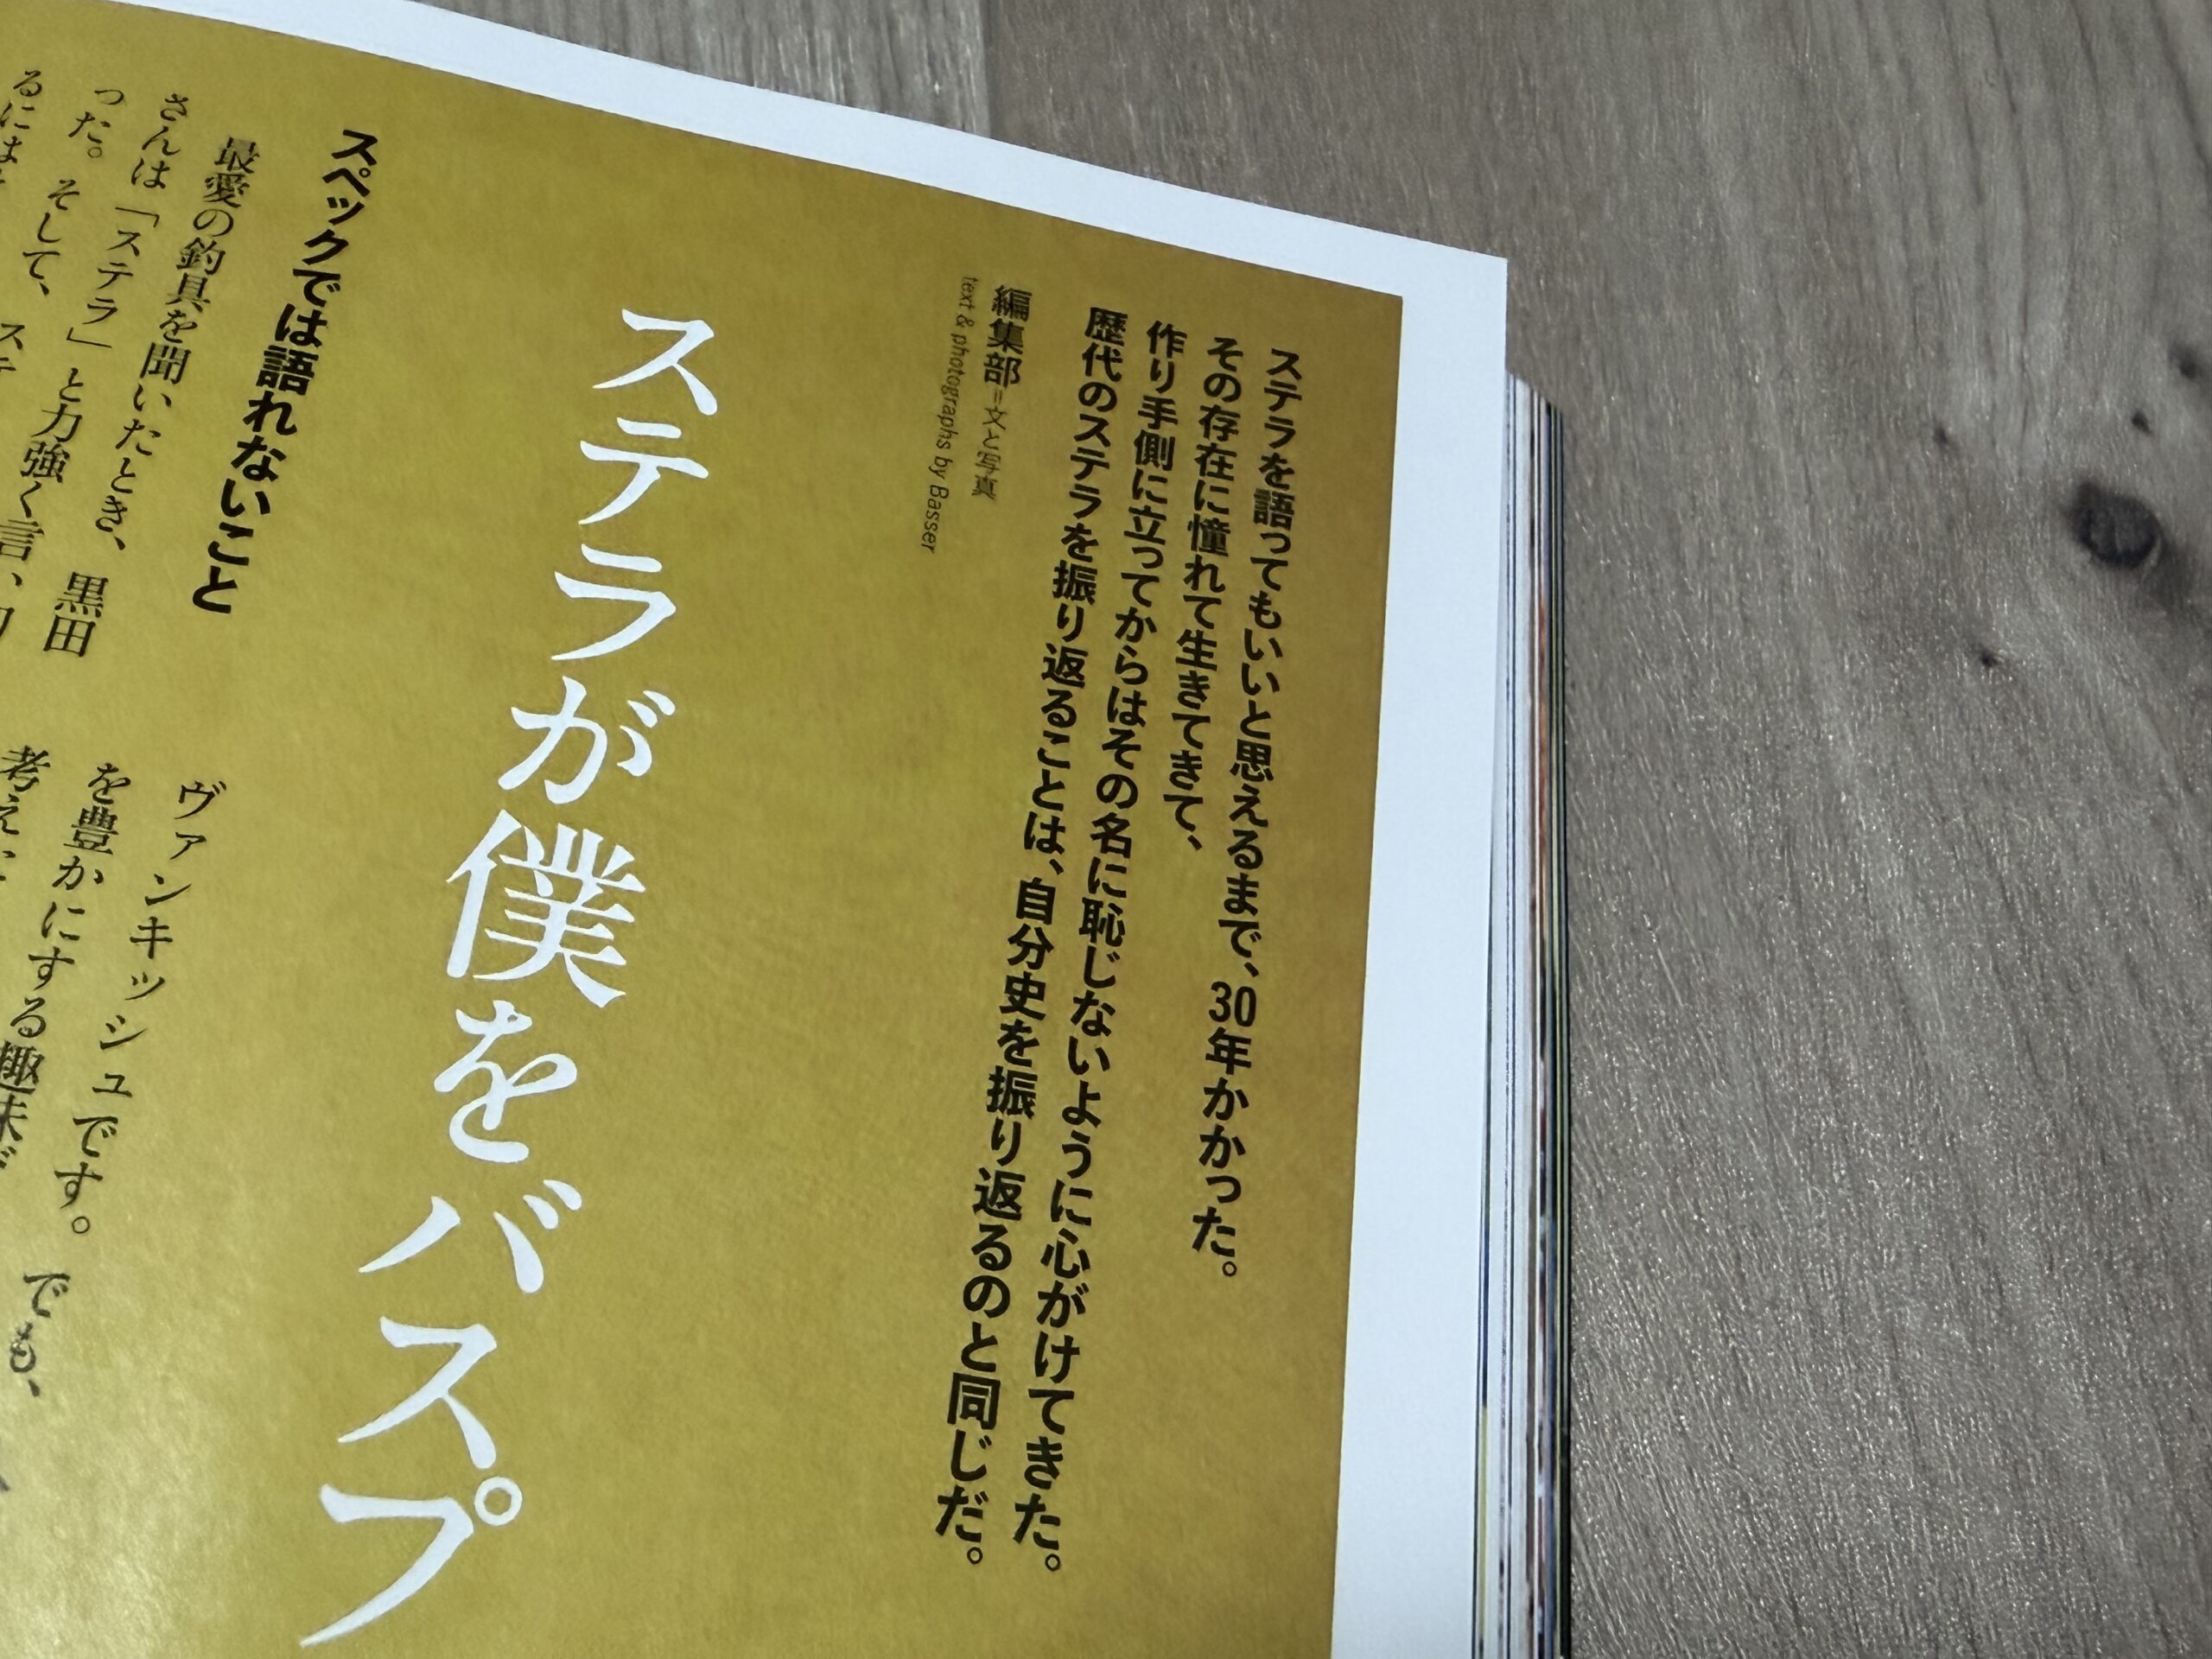 ステラを語ってもいいと思えるまで、30年かかった。
その存在に憧れて生きてきて、
作り手側に立ってからはその名に恥じないように心がけてきた。
歴代のステラを振り返ることは、自分史を振り返るのと同じだ。
編集部=文と写真
text & photographs by Basser
ステラが僕をバスプ
スペックでは語れないこと
最愛の釣具を聞いたとき、黒田
さんは「ステラ」と力強く言
った。そして、ステ
るには
ヴァンキッシュです。でも、
を豊かにする趣味
考え